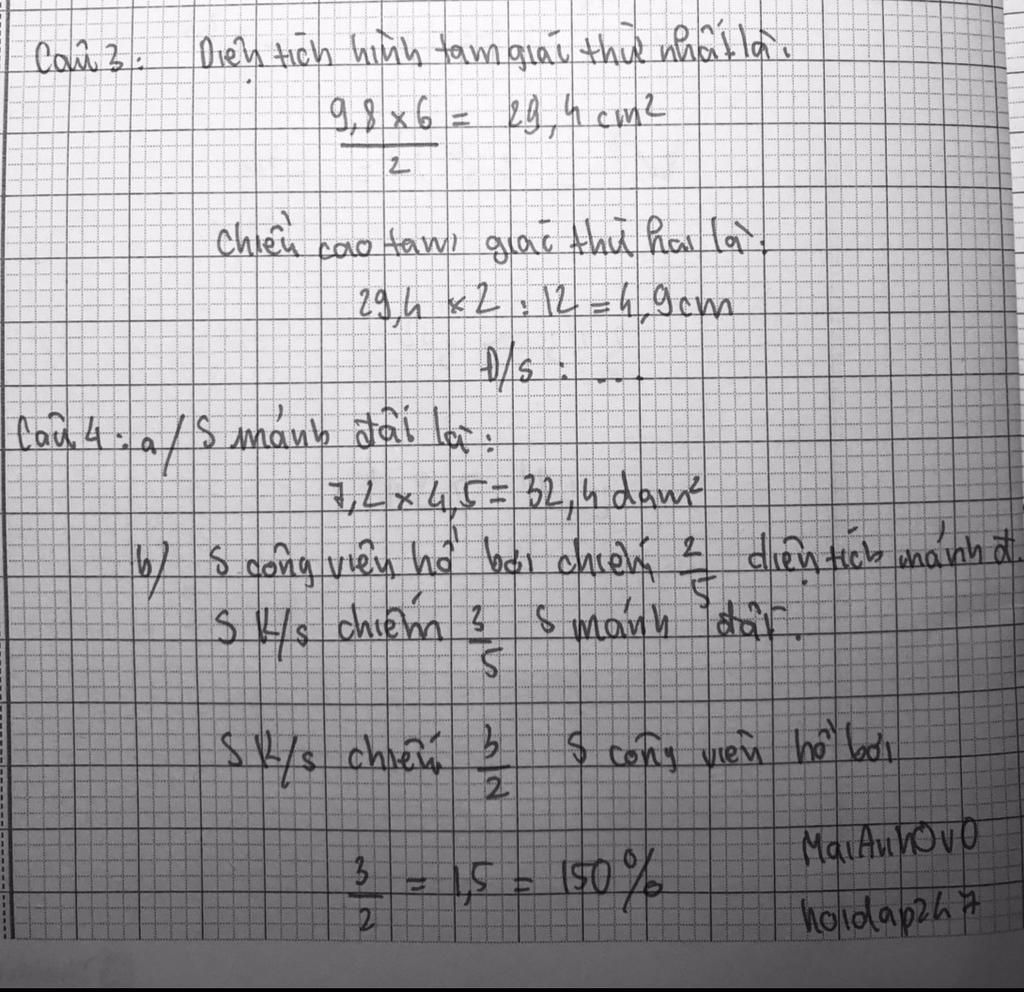 Câu 3: Diện tích hình tam giác thứ nhất là:
9,8 x 6 = 29,4 cm²
2
Chiều cao tam giác thứ hai là:
29,4 x 2 : 12 = 4,9cm
Đ/s : ...
Câu 4: a/ S mảnh đất là:
7,2 x 4,5 = 32,4 dam²
b) S công viên hồ bơi chiếm 2/5 diện tích mảnh đ
S K/s chiếm 3/5 S mảnh đất.
S K/s chiếm 3/2 S công viên hồ bơi
3/2 = 1,5 = 150%
MaiAnhOvO
hoidap247